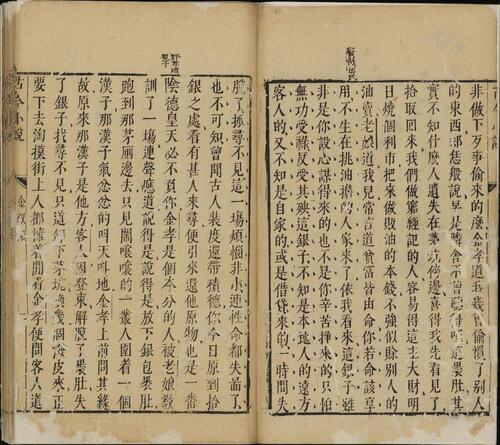 非做下歹事偷來的麼金孝道我幾曾偷慣了別人
的東西卻恁般說早是鄰舍不曾聽得哩這裹肚其
實不知什麼人遺失在茅坑傍邊喜得我先看見了
拾取回來我們做窮經紀的人容易得這主大財明
日燒個利市把來做販油的本錢不強似賒別人的
油賣老娘道我兒常言道貧富皆由命你若命該享
用不生在挑油擔的人家來了依我看來這銀子雖
非是你設心謀得來的也不是你辛苦掙來的只怕
無功受祿反受其殃這銀子不知是本地人的遠方
客人的又不知是自家的或是借貸來的一時間失
脫了抓尋不見這一場煩惱非小連性命都失啚了
也不可知曾聞古人裴度還帶積德你今日原到拾
銀之處看有甚人來尋便引來還他原物也是一番
陰德皇天必不負你金孝是個本分的人被老娘教
訓了一場連聲應道說得是說得是放下銀包裹肚
跑到那茅廁邊去只見鬧嚷嚷的一叢人圍着一個
漢子那漢子氣忿忿的叫天叫地金孝上前問其緣
故原來那漢子是他方客人因登東解脫了裹肚失
了銀子找尋不見只道卸下茅坑喚幾個潑皮來正
要下去淘摸街上人都擁着閒看金孝便問客人道
古今小說